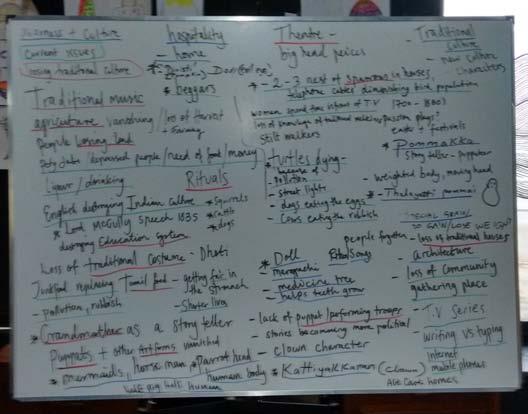 Business + Culture
Current issues
losing traditional culture
Traditional music
agriculture vanishing / loss of Harvest
+ Farming
People losing land
Duty Jobs / depressed people / need of food / money
Liquor / drinking
Rituals
English destroying Indian culture
* Squirrels
* cattle
* dogs
* Lord McCully speech 1835
destroying Education system
Loss of traditional costume - Dhoti
Junkfood replacing Tamil food - Getting fat in
the stomach
- pollution, rubbish
- Shorter lives
* Grandmother as a story teller
Puppets + other Artforms vanished
* mermaids, horse man, parrot head
human body
human
hospitality
- home
* beggars
Theatre -
big head peices
* - 2 - 3 nest of sparrows in houses,
telephone cables diminishing bird population
women spend time infront of T.V (1700 - 1800)
loss of knowings of traditional medicine
Passion plays?
Stilt walkers
easter festivals
* Turtles dying -
because of
- Pollution
- street lights
- dogs eating the eggs
- Cows eating the rubbish
* Pommakka
story teller - puppeteer
- weighted body, moving head
people forgotten
* Doll
Ritual Songs
- medicine tree
- helps teeth grow
- lack of puppet / performing troops
- stories becomming more political
- clown character
* Kattiyakkaran (clown)
Traditional
Culture
- new culture
characters
SPECIAL GRAIN
TO GAIN/LOSE WEIGHT
- loss of traditional houses
- architecture
- loss of community
gathering place
- T.V Series
writing vs typing
internet
mobile phones
Age care homes